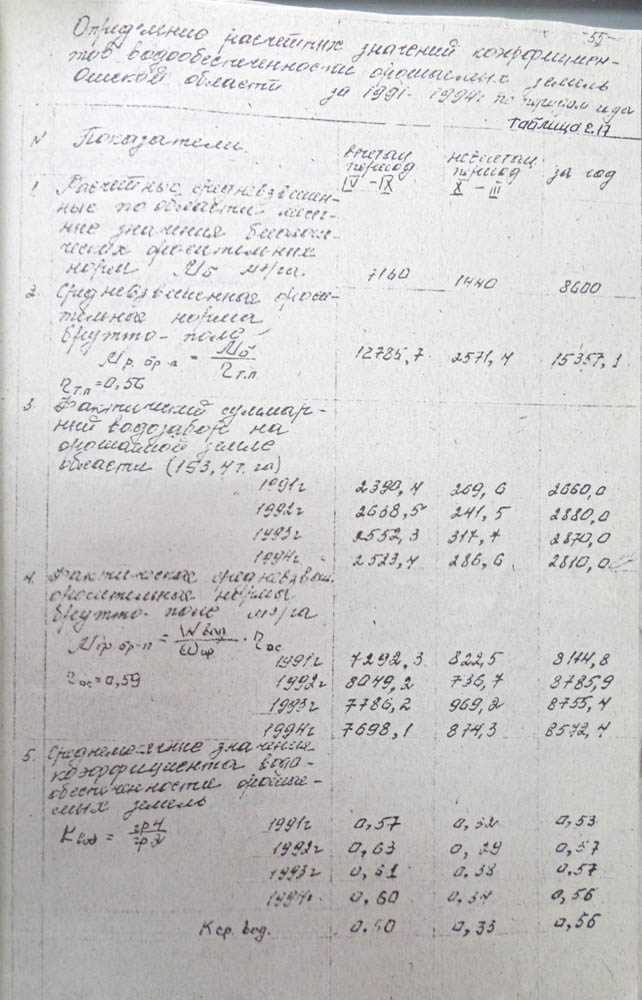 55
Определению расчетных значений коэффициен-
тов водообеспеченности орошаемых земель
Ошской области за 1991-1994г по периодам и да
Таблица 2.17
N Показатели. вегетац. период IV-IX невегетац. период X-III за год
1. Расчетные средневзвешен-
ные по области
значения биологи-
ческих оросительных
норм Мб м³/га. 7160 1440 8600
2. Средневзвешенная ороси-
тельная норма
брутто-поле
Мр.бр-п = Мб/ηт.п 12785,7 2571,4 15357,1
ηт.п = 0,56
3. Фактический суммар-
ный водозабор на
орошаемой земле
области (193,4 т.га)
1991г 2390,4 269,6 2660,0
1992г 2638,5 241,5 2880,0
1993г 2552,3 317,7 2870,0
1994г 2523,4 286,6 2810,0
4. Фактические средневзвеш.
оросительные нормы
брутто-поле м³/га
Мбр.ор-п = Wвод/ωор · ηос
1991г 7292,3 822,5 8114,8
ηос = 0,59 1992г 8049,2 736,7 8785,9
1993г 7786,2 969,2 8755,4
1994г 7698,1 874,3 8572,4
5. значения
коэффициента водо-
обеспеченности ороша-
емых земель
Kвод = гр4/гр2 1991г 0,57 0,32 0,53
1992г 0,63 0,29 0,57
1993г 0,61 0,38 0,57
1994г 0,60 0,34 0,56
Kср. вод. 0,60 0,33 0,56